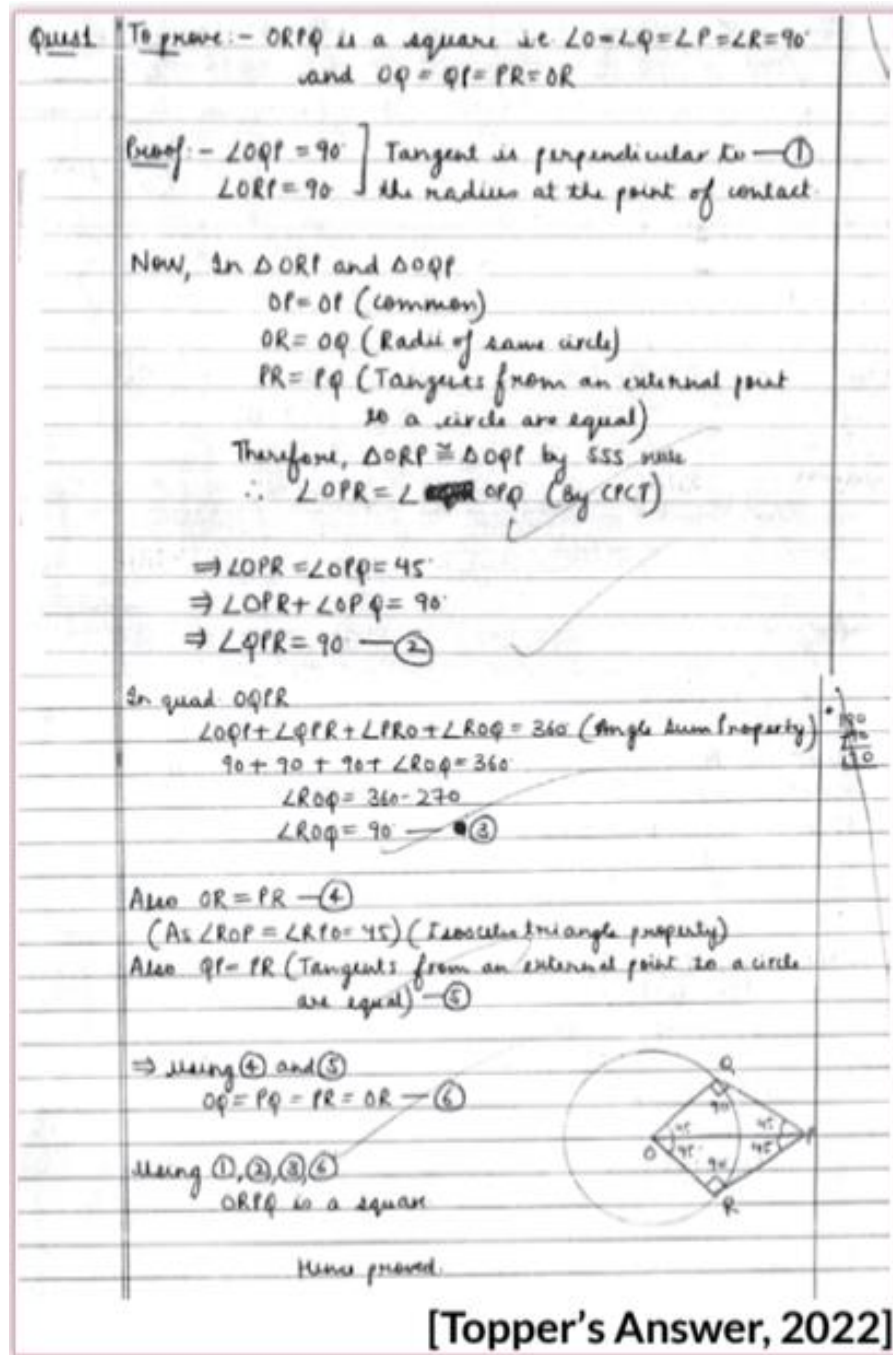 Ques1 To prove:- ORPQ is a square i.e. ∠O=∠Q=∠P=∠R=90°
and OQ = QP = PR = OR
Proof:- ∠OQP = 90° ] Tangent is perpendicular to —①
∠ORP = 90° the radius at the point of contact.
Now, In △ORP and △OQP
OP = OP (common)
OR = OQ (Radii of same circle)
PR = PQ (Tangents from an external point
to a circle are equal)
Therefore, △ORP ≅ △OQP by SSS rule
∴ ∠OPR = ∠ OPQ (By CPCT)
⇒ ∠OPR = ∠OPQ = 45°
⇒ ∠OPR + ∠OPQ = 90°
⇒ ∠QPR = 90° —②
In quad. OQPR
∠OQP + ∠QPR + ∠PRO + ∠ROQ = 360° (Angle Sum Property)
90 + 90 + 90 + ∠ROQ = 360°
∠ROQ = 360 - 270
∠ROQ = 90° — ③
Also OR = PR —④
(As ∠ROP = ∠RPO = 45°) (Isosceles triangle property)
Also QP = PR (Tangents from an external point to a circle
are equal) —⑤
⇒ Using ④ and ⑤
OQ = PQ = PR = OR —⑥
Using ①,②,③,⑥
ORPQ is a square
Hence proved.
Q
90
45 45
O P
45 45
90
R
[Topper's Answer, 2022]